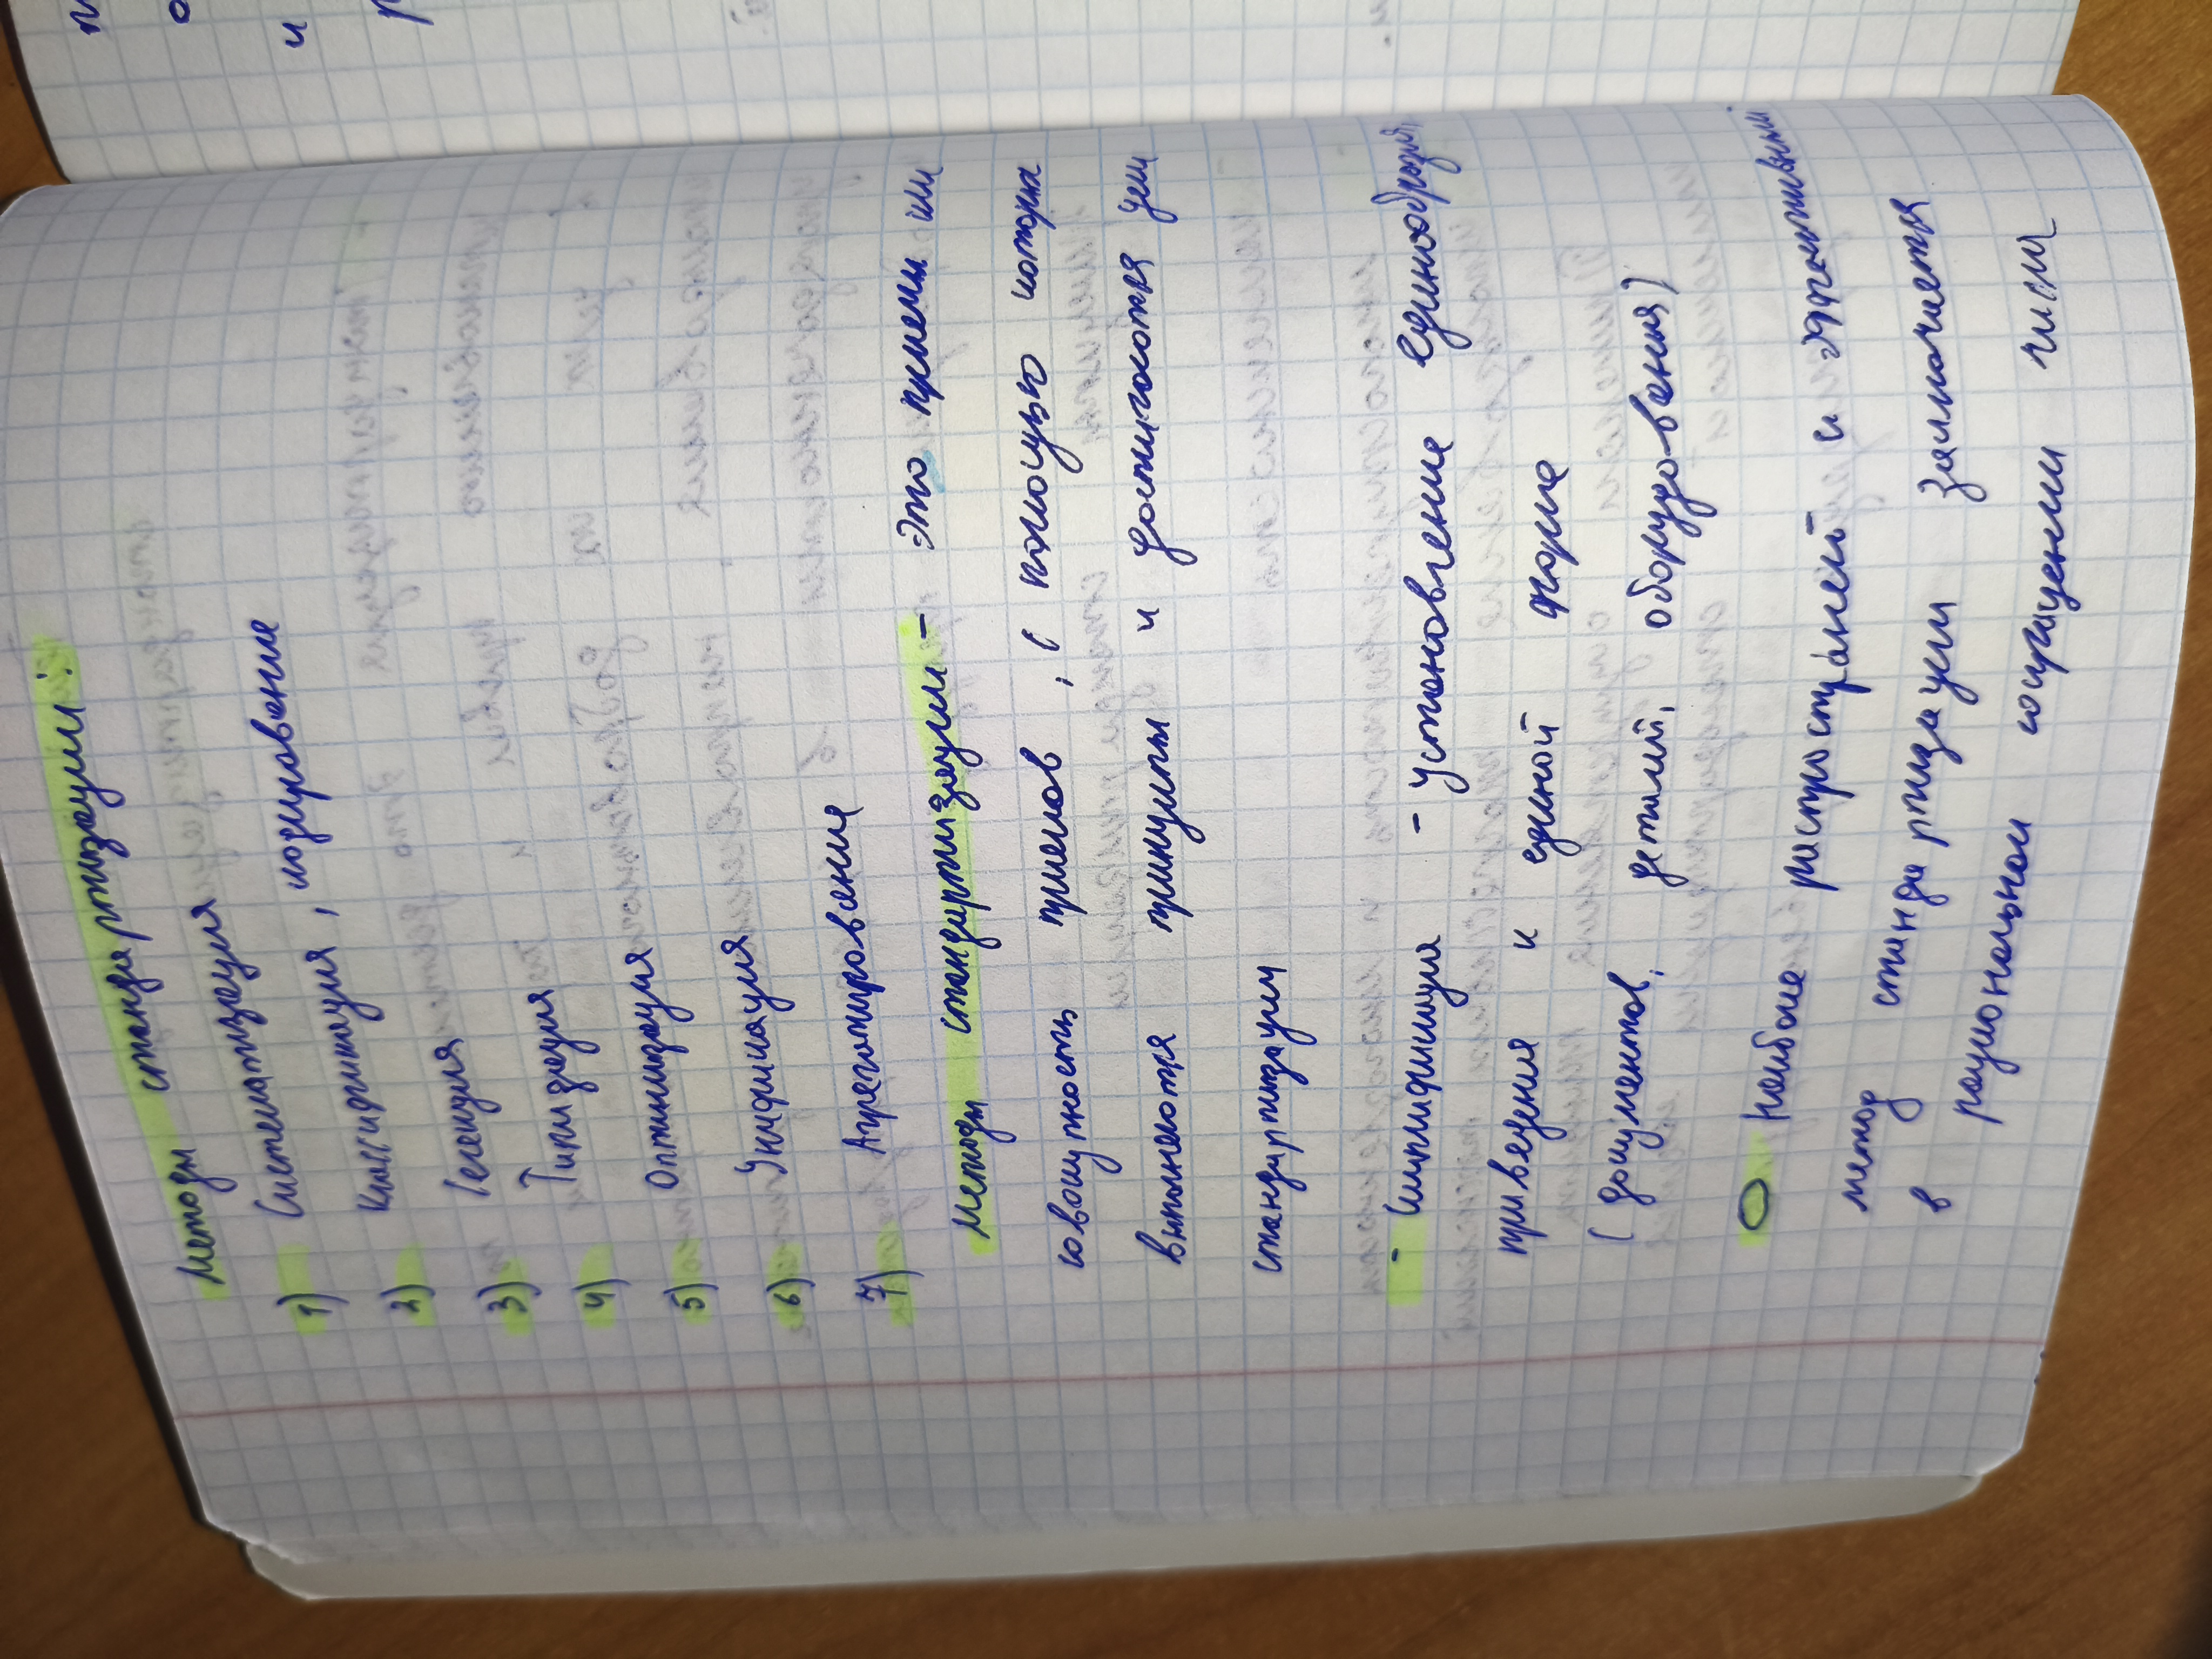 Методы стандартизации:
1) Систематизация
2) Классификация, кодирование
3) Селекция
4) Типизация
5) Оптимизация
6) Унификация
7) Агрегатирование
Методы стандартизации - это прием или
совокупность приемов, с помощью котора
выполняются принципы и достигаются цели
стандартизации
- Симплификация - Установление единообразия,
приведения к единой форме
(документов, деталий, оборудования)
Наиболее распространей и эффективный
метод стандартизации заключается
в рациональном сокращении числа